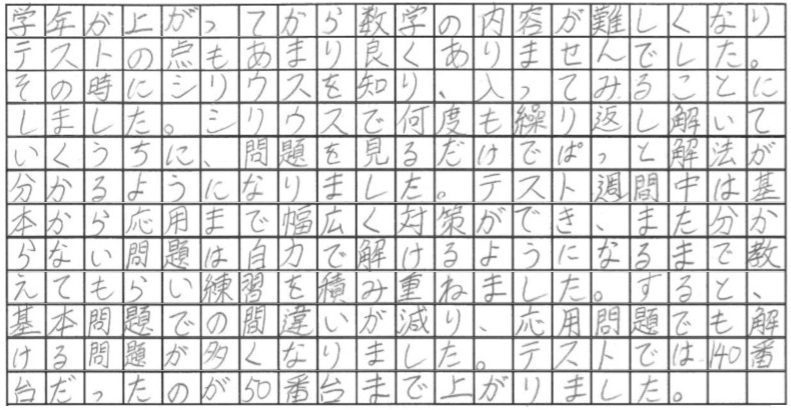 学年が上がってから数学の内容が難しくなり
テストの点もあまり良くありませんでした。
その時にシリウスを知り、入ってみることに
しました。シリウスで何度も繰り返し解いて
いくうちに、問題を見るだけでぱっと解法が
分かるようになりました。テスト週間中は基
本から応用まで幅広く対策ができ、また分か
らない問題は自力で解けるようになるまで教
えてもらい練習を積み重ねました。すると、
基本問題での間違いが減り、応用問題でも解
ける問題が多くなりました。テストでは140番
台だったのが50番台まで上がりました。